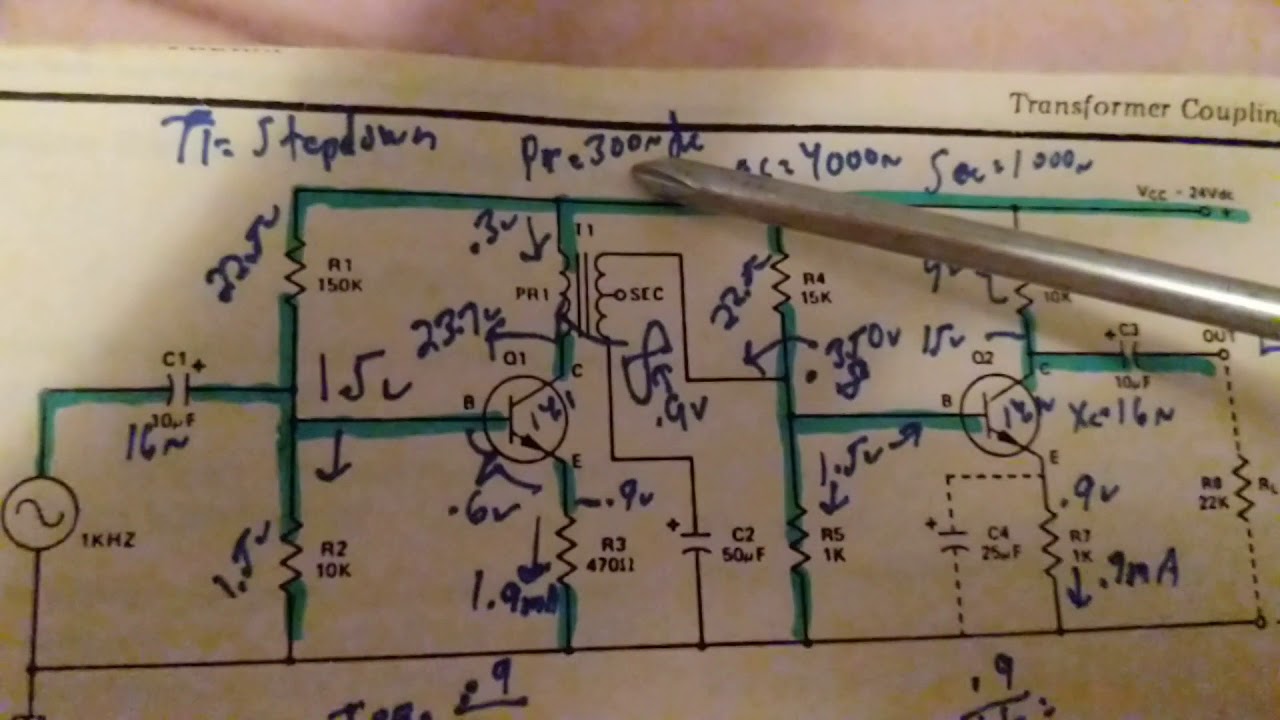 Transformer Couplin
T1= Stepdown
Pr=300Ω
=4000Ω Sec=1000Ω
VCC - 24Vdc
+
22.5v
R1
150K
.3v
T1
PR1
SEC
22.5v
R4
15K
9v
10K
23.7v
1.5v
C1
+
10µF
16Ω
B
Q1
C
E
.6v
.9v
.9v
15v
Q2
B
C
E
C3
+
10µF
OUT
Xc=16Ω
1KHZ
1.5v
R2
10K
1.9mA
R3
470Ω
+
C2
50µF
1.5v
R5
1K
+
C4
25µF
.9v
R7
1K
.9mA
R8
22K
RL
.9
.9